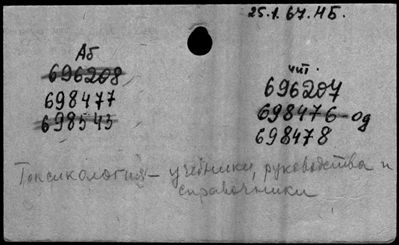 25.1.67.НБ.
Аб
696208
698477
698543
чит.
696207
698476-од
698478
Токсикология – учебники, руководства и
справочники